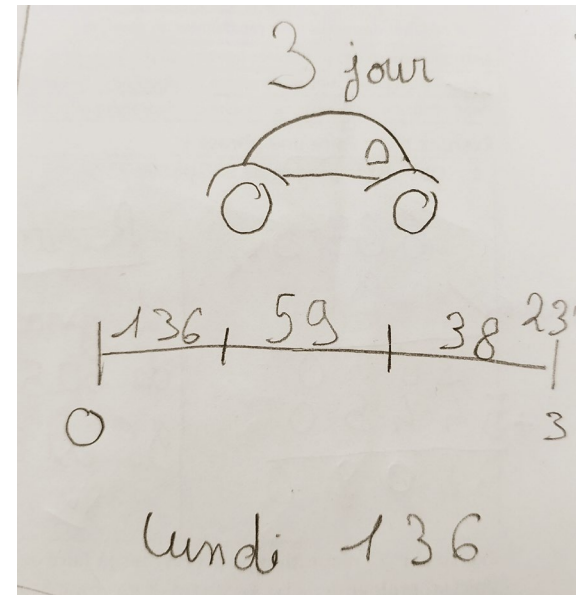 3 jour
136 59 38
0 3
lundi 136